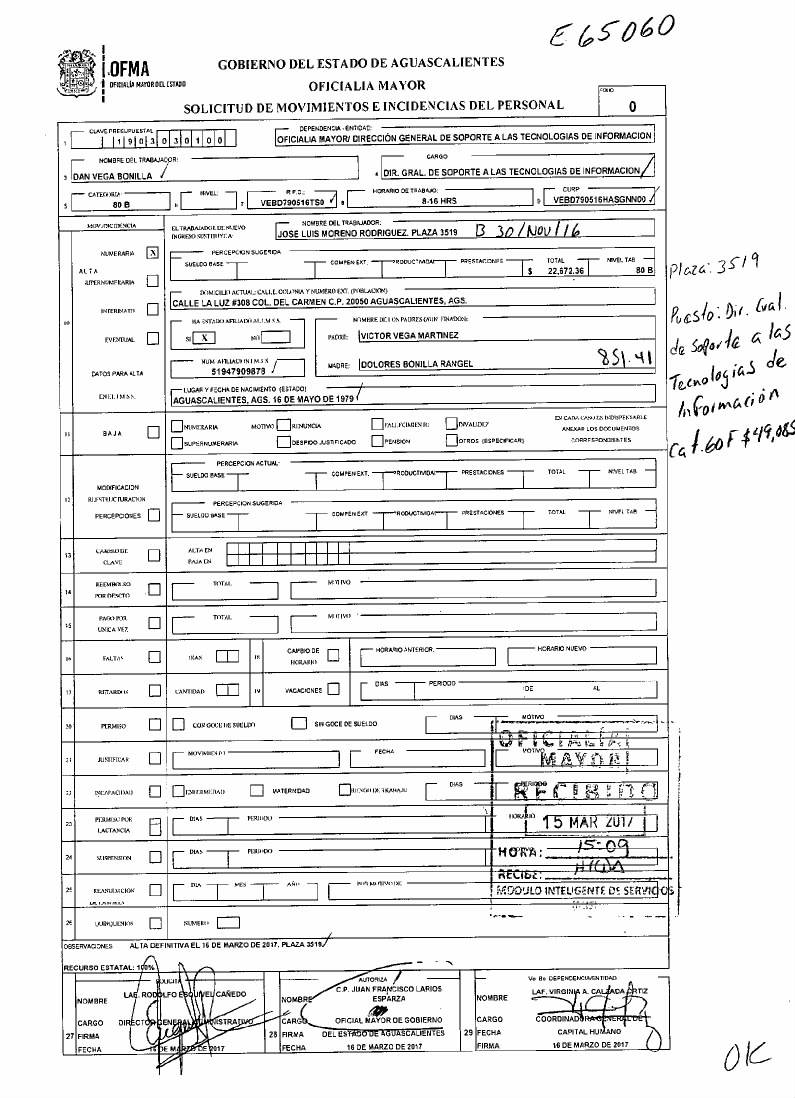 E65060
OFMA
OFICIALÍA MAYOR DEL ESTADO
GOBIERNO DEL ESTADO DE AGUASCALIENTES
OFICIALIA MAYOR
SOLICITUD DE MOVIMIENTOS E INCIDENCIAS DEL PERSONAL
FOLIO
0
CLAVE PRESUPUESTAL
DEPENDENCIA-ENTIDAD:
1 1 9 0 3 0 3 0 1 0 0
OFICIALIA MAYOR/ DIRECCIÓN GENERAL DE SOPORTE A LAS TECNOLOGIAS DE INFORMACION
NOMBRE DEL TRABAJADOR:
CARGO
3 DAN VEGA BONILLA
4 DIR. GRAL. DE SOPORTE A LAS TECNOLOGIAS DE INFORMACION
CATEGORIA: NIVEL: R.F.C.: HORARIO DE TRABAJO: CURP
5 80 B 6 7 VEBD790516TS0 8 8-16 HRS 9 VEBD790516HASGNN00
MOV./INCIDENCIA
EL TRABAJADOR DE NUEVO INGRESO SUSTITUYE A:
NOMBRE DEL TRABAJADOR:
JOSE LUIS MORENO RODRIGUEZ. PLAZA 3519 B 30/NOV/16
NUMERARIA X
PERCEPCION SUGERIDA
SUELDO BASE COMPEN EXT. PRODUCTIVIDAD PRESTACIONES TOTAL NIVEL TAB
$ 22,672.36 80 B
ALTA
SUPERNUMERARIA
DOMICILIO ACTUAL: CALLE, COLONIA Y NUMERO EXT. (POBLACION)
CALLE LA LUZ #308 COL. DEL CARMEN C.P. 20050 AGUASCALIENTES, AGS.
Plaza: 3519
Puesto: Dir. Gral. de Soporte a las Tecnologias de Información
Cat. 60F $49,085
INTERINATO
10
HA ESTADO AFILIADO AL I.M.S.S.
NOMBRE DE LOS PADRES (AUN FINADOS):
EVENTUAL
SI X NO
PADRE: VICTOR VEGA MARTINEZ
DATOS PARA ALTA
NUM. AFILIADO IN I.M.S.S.
51947909878
MADRE: DOLORES BONILLA RANGEL
851.41
EN EL I.M.S.S.
LUGAR Y FECHA DE NACIMIENTO (ESTADO)
AGUASCALIENTES, AGS. 16 DE MAYO DE 1979
11 BAJA
NUMERARIA MOTIVO RENUNCIA FALLECIMIENTO INVALIDEZ
SUPERNUMERARIA DESPIDO JUSTIFICADO PENSION OTROS (ESPECIFICAR)
EN CADA CASO ES INDISPENSABLE
ANEXAR LOS DOCUMENTOS
CORRESPONDIENTES
12 MODIFICACION
REESTRUCTURACION
PERCEPCIONES
PERCEPCION ACTUAL
SUELDO BASE COMPEN EXT. PRODUCTIVIDAD PRESTACIONES TOTAL NIVEL TAB
PERCEPCION SUGERIDA
SUELDO BASE COMPEN EXT PRODUCTIVIDAD PRESTACIONES TOTAL NIVEL TAB
13 CAMBIO DE CLAVE
ALTA EN
BAJA EN
14 REEMBOLSO POR DESCTO
TOTAL MOTIVO
15 PAGO POR UNICA VEZ
TOTAL MOTIVO
16 FALTAS DIAS 18 CAMBIO DE HORARIO HORARIO ANTERIOR. HORARIO NUEVO
17 RETARDOS CANTIDAD 19 VACACIONES DIAS PERIODO DE AL
20 PERMISO CON GOCE DE SUELDO SIN GOCE DE SUELDO DIAS MOTIVO
21 JUSTIFICAR MOVIMIENTO FECHA MOTIVO
22 INCAPACIDAD ENFERMEDAD MATERNIDAD RIESGO DE TRABAJO DIAS PERIODO
23 PERMISO POR LACTANCIA DIAS PERIODO HORARIO
24 SUSPENSION DIAS PERIODO
25 REANUDACION DIA MES AÑO
26 QUINQUENIOS NUMERO
OFICIALIA
MAYOR
RECIBIDO
15 MAR 2017
HORA: 15-09
RECIBE: HILDA
MODULO INTELIGENTE DE SERVICIOS
OBSERVACIONES ALTA DEFINITIVA EL 16 DE MARZO DE 2017. PLAZA 3519
RECURSO ESTATAL: 100%
SOLICITA
NOMBRE LAE. RODOLFO ESQUIVEL CAÑEDO
CARGO DIRECTOR GENERAL ADMINISTRATIVO
27 FIRMA
FECHA 16 DE MARZO DE 2017
AUTORIZA
NOMBRE C.P. JUAN FRANCISCO LARIOS ESPARZA
CARGO OFICIAL MAYOR DE GOBIERNO
28 FIRMA DEL ESTADO DE AGUASCALIENTES
FECHA 16 DE MARZO DE 2017
Vo Bo DEPENDENCIA/ENTIDAD
NOMBRE LAF. VIRGINIA A. CALZADA ORTIZ
CARGO COORDINADORA GENERAL DE
29 FECHA CAPITAL HUMANO
FIRMA 16 DE MARZO DE 2017
OK